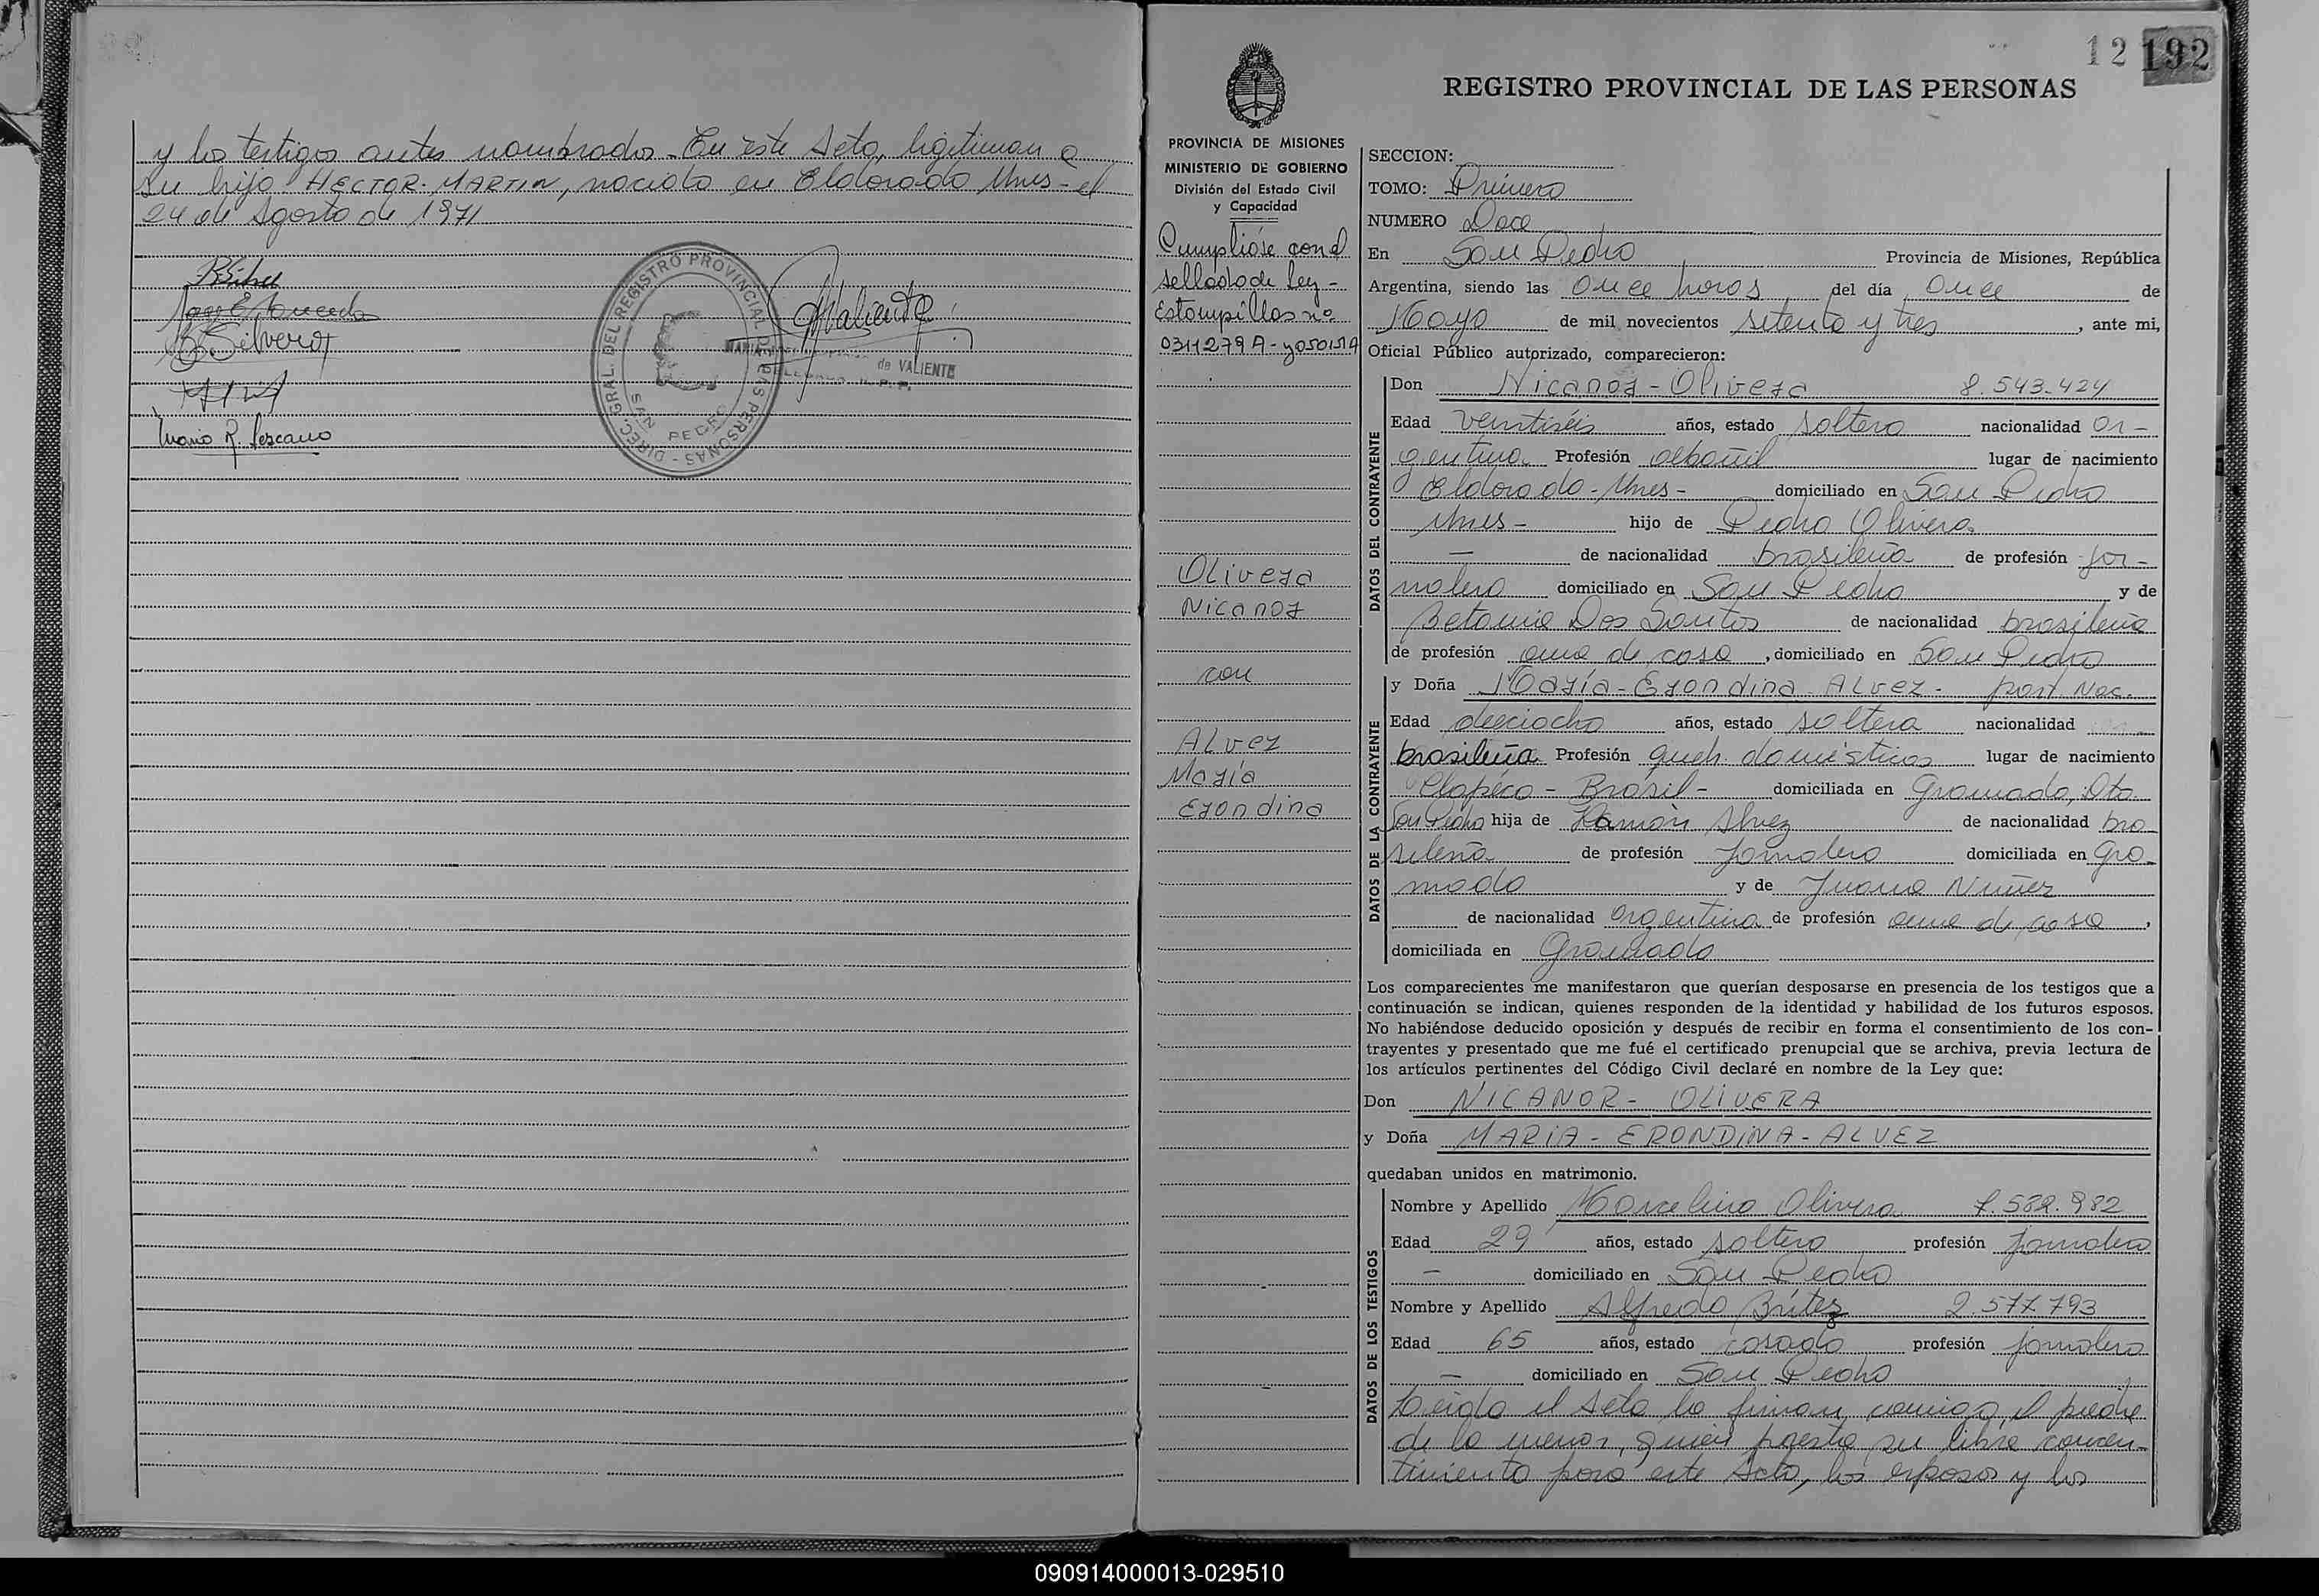 y los testigos antes nombrados - En este Acto, legitiman a
su hijo HECTOR - MARTIN, nacido en Eldorado Mnes - el
24 de Agosto de 1971
B Silvero
Mario R. Lescano
DIREC. GRAL. DEL REGISTRO PROVINCIAL DE LAS PERSONAS
SAN PEDRO
de VALIENTE
12 192
REGISTRO PROVINCIAL DE LAS PERSONAS
PROVINCIA DE MISIONES
MINISTERIO DE GOBIERNO
División del Estado Civil
y Capacidad
Cumplióse con el
sellado de Ley -
Estampillas nº
0311279A - y
Olivera
Nicanor
con
Alvez
María
Erondina
SECCION:
TOMO: Primero
NUMERO Doce
En San Pedro Provincia de Misiones, República
Argentina, siendo las once horas del día once de
Mayo de mil novecientos setenta y tres, ante mi,
Oficial Público autorizado, comparecieron:
DATOS DEL CONTRAYENTE
Don Nicanor - Olivera 8.543.424
Edad veintiséis años, estado soltero nacionalidad ar-
gentina Profesión albañil lugar de nacimiento
Eldorado - Mnes - domiciliado en San Pedro
Mnes - hijo de Pedro Olivera
— de nacionalidad brasileña de profesión jor-
nalero domiciliado en San Pedro y de
Betania Dos Santos de nacionalidad brasileña
de profesión ama de casa, domiciliado en San Pedro
DATOS DE LA CONTRAYENTE
y Doña María - Erondina - Alvez - part. Nac.
Edad dieciocho años, estado soltera nacionalidad
brasileña Profesión queh. domésticos lugar de nacimiento
Chapéco - Brasil - domiciliada en Gramado, Dto.
San Pedro hija de Ramón Alvez de nacionalidad bra-
sileña de profesión Jornalero domiciliada en Gra-
mado y de Juana Nuñez
de nacionalidad argentina de profesión ama de casa,
domiciliada en Gramado
Los comparecientes me manifestaron que querían desposarse en presencia de los testigos que a
continuación se indican, quienes responden de la identidad y habilidad de los futuros esposos.
No habiéndose deducido oposición y después de recibir en forma el consentimiento de los con-
trayentes y presentado que me fué el certificado prenupcial que se archiva, previa lectura de
los artículos pertinentes del Código Civil declaré en nombre de la Ley que:
Don NICANOR - OLIVERA
y Doña MARIA - ERONDINA - ALVEZ
quedaban unidos en matrimonio.
DATOS DE LOS TESTIGOS
Nombre y Apellido Marcelino Olivera 7.532.982
Edad 29 años, estado soltero profesión jornalero
— domiciliado en San Pedro
Nombre y Apellido Alfredo Brítez 2.577.793
Edad 65 años, estado casado profesión jornalero
— domiciliado en San Pedro
Leída el Acta la firman conmigo, el padre
de la menor, quien presta su libre consen-
timiento para este Acto, los esposos y los
090914000013-029510